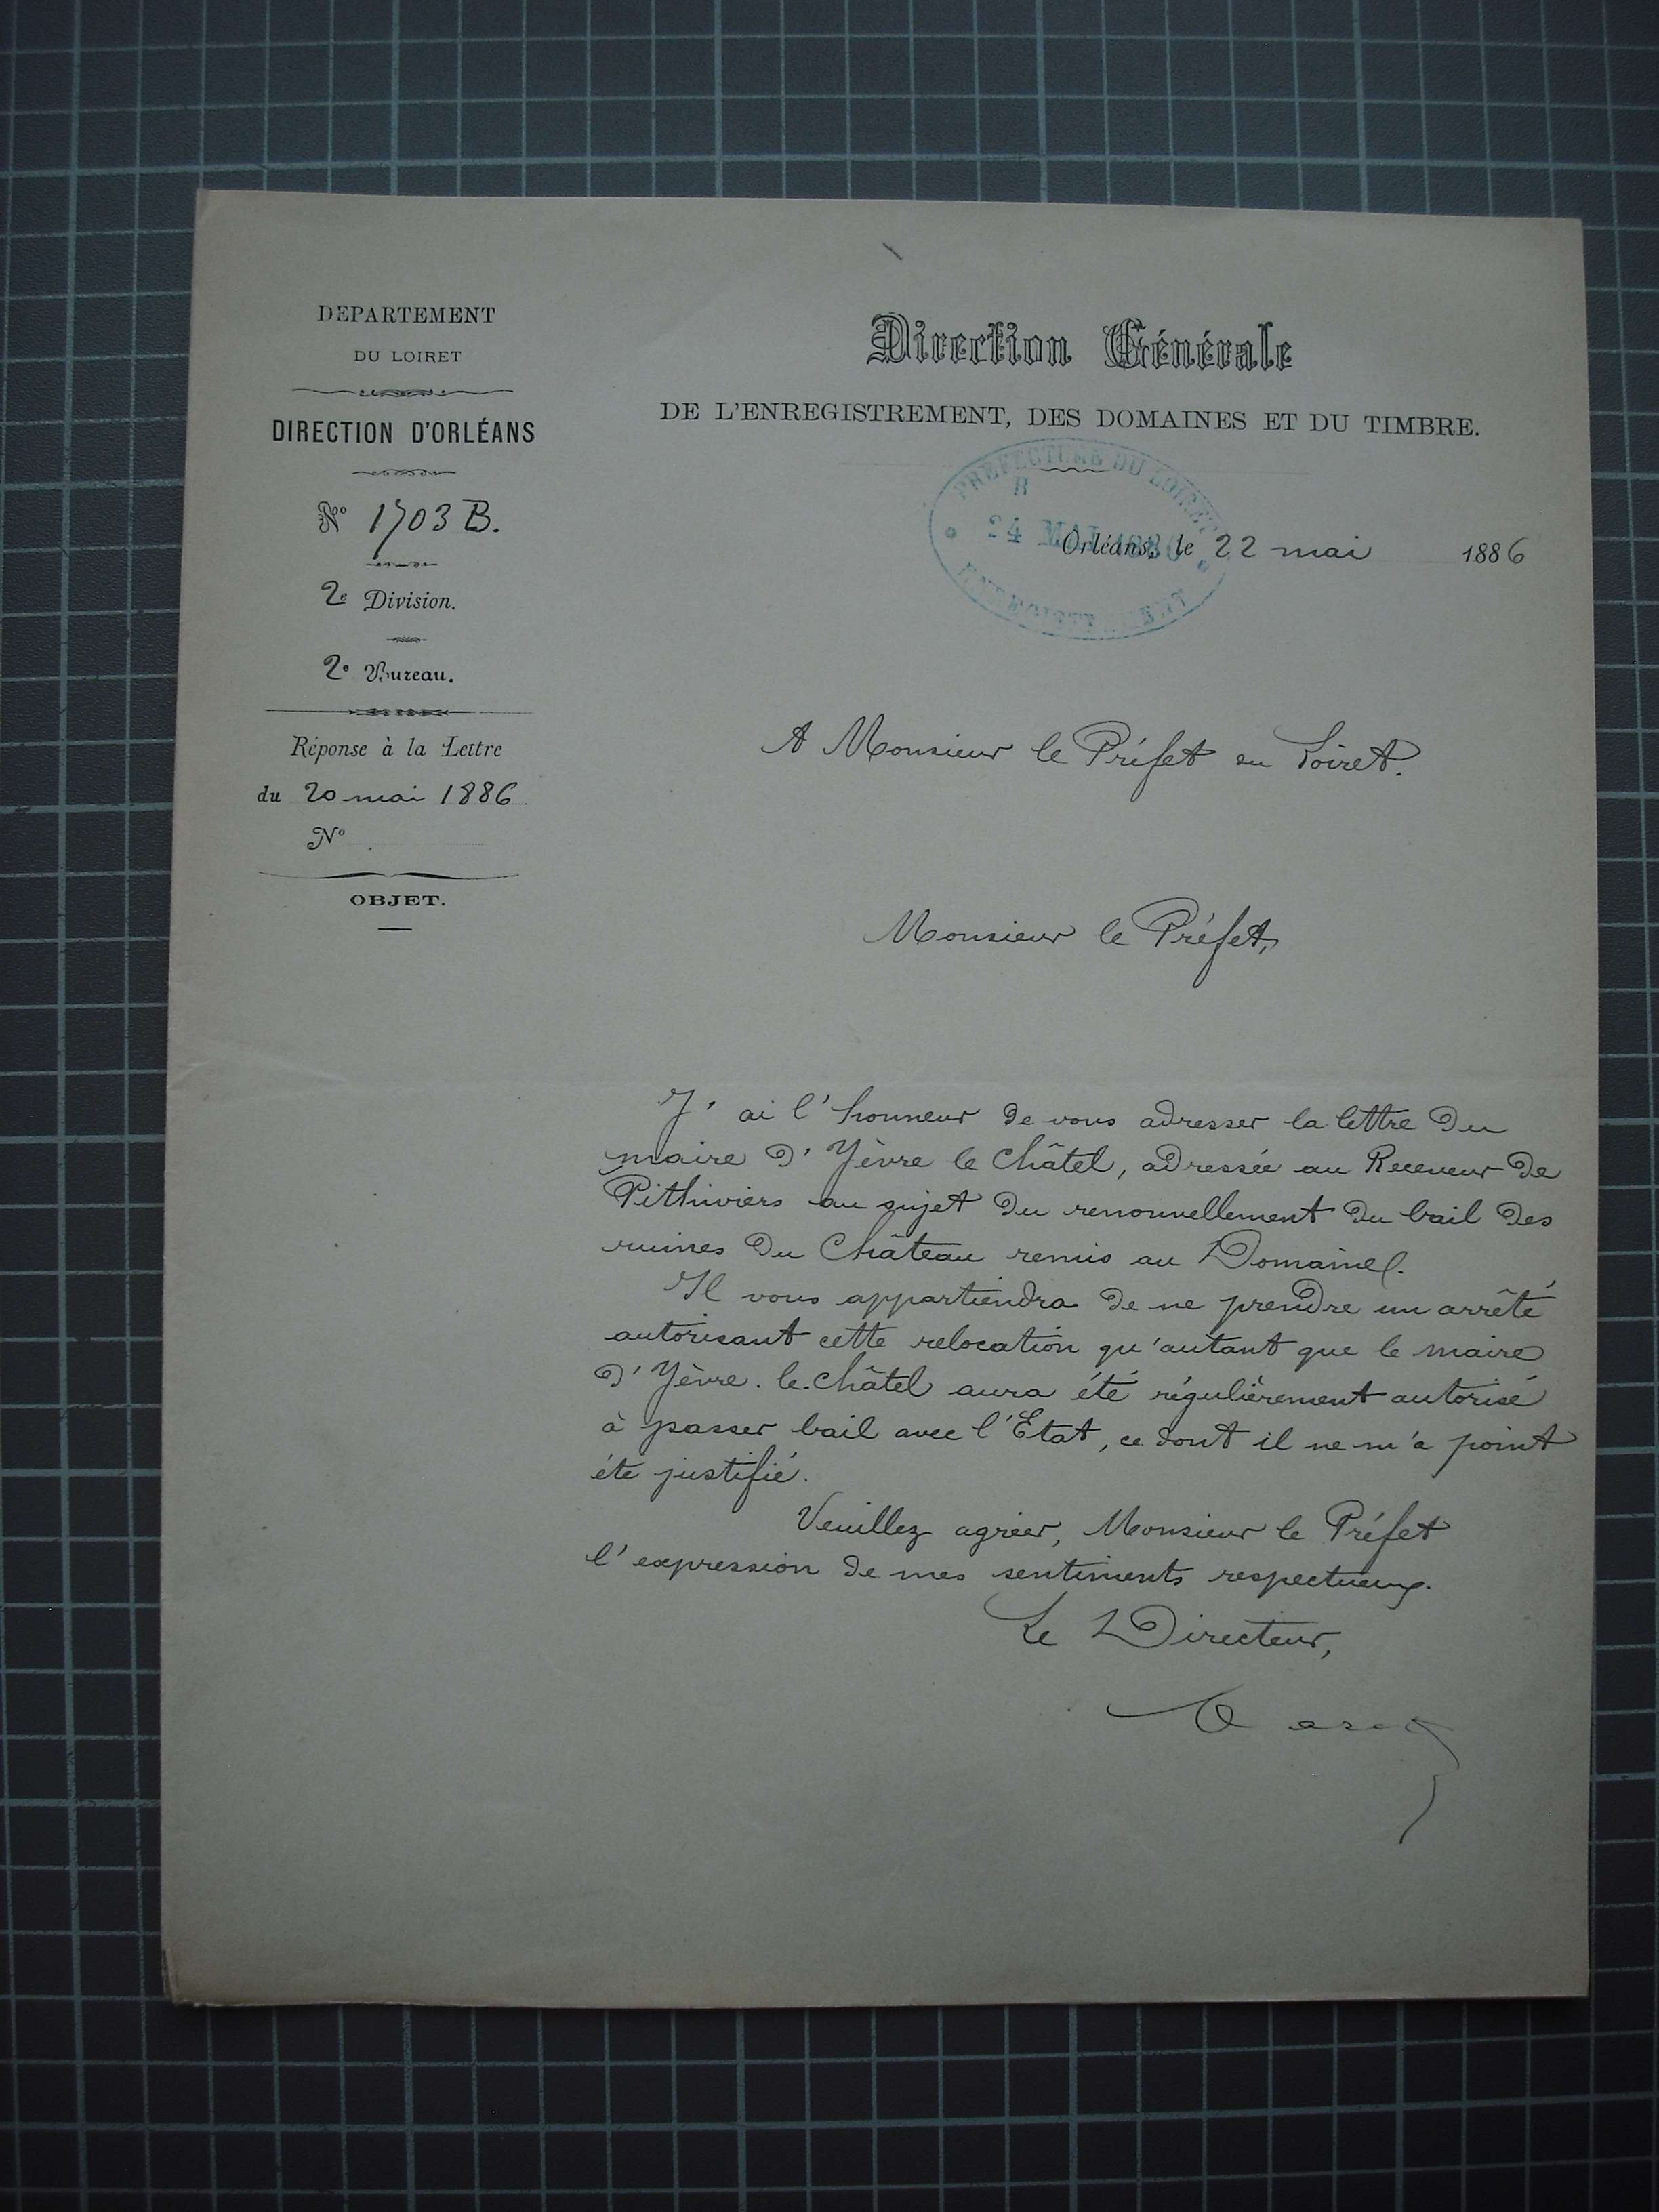 DEPARTEMENT
DU LOIRET
DIRECTION D'ORLÉANS
N° 1703 B.
2e Division.
2e Bureau.
Réponse à la Lettre
du 20 mai 1886
N°
OBJET.
Direction Générale
DE L'ENREGISTREMENT, DES DOMAINES ET DU TIMBRE.
PRÉFECTURE DU LOIRET
R
24 MAI 1886
ENREGISTREMENT
Orléans, le 22 mai 1886
A Monsieur le Préfet du Loiret.
Monsieur le Préfet,
J'ai l'honneur de vous adresser la lettre du
maire d'Yèvre le Châtel, adressée au Receveur de
Pithiviers au sujet du renouvellement du bail des
ruines du Château remis au Domaine.
Il vous appartiendra de ne prendre un arrêté
autorisant cette relocation qu'autant que le maire
d'Yèvre-le-Châtel aura été régulièrement autorisé
à passer bail avec l'Etat, ce dont il ne m'a point
été justifié.
Veuillez agréer, Monsieur le Préfet
l'expression de mes sentiments respectueux.
Le Directeur,